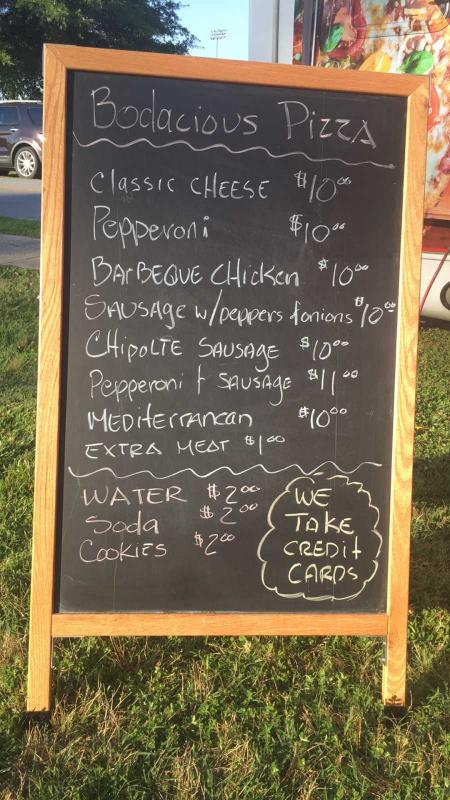 Bodacious Pizza
Classic CHEESE $10.00
Pepperoni $10.00
BARBEQUE CHicken $10.00
SAUSAGE w/peppers &onions $10.00
CHipoLTE SAUSAGE $10.00
Pepperoni & SAUSAGE $11.00
MEDiterranean $10.00
EXTRA MEAT $1.00
WATER $2.00
Soda $2.00
COOKiES $2.00
WE
TAKE
CREDit
CARDS